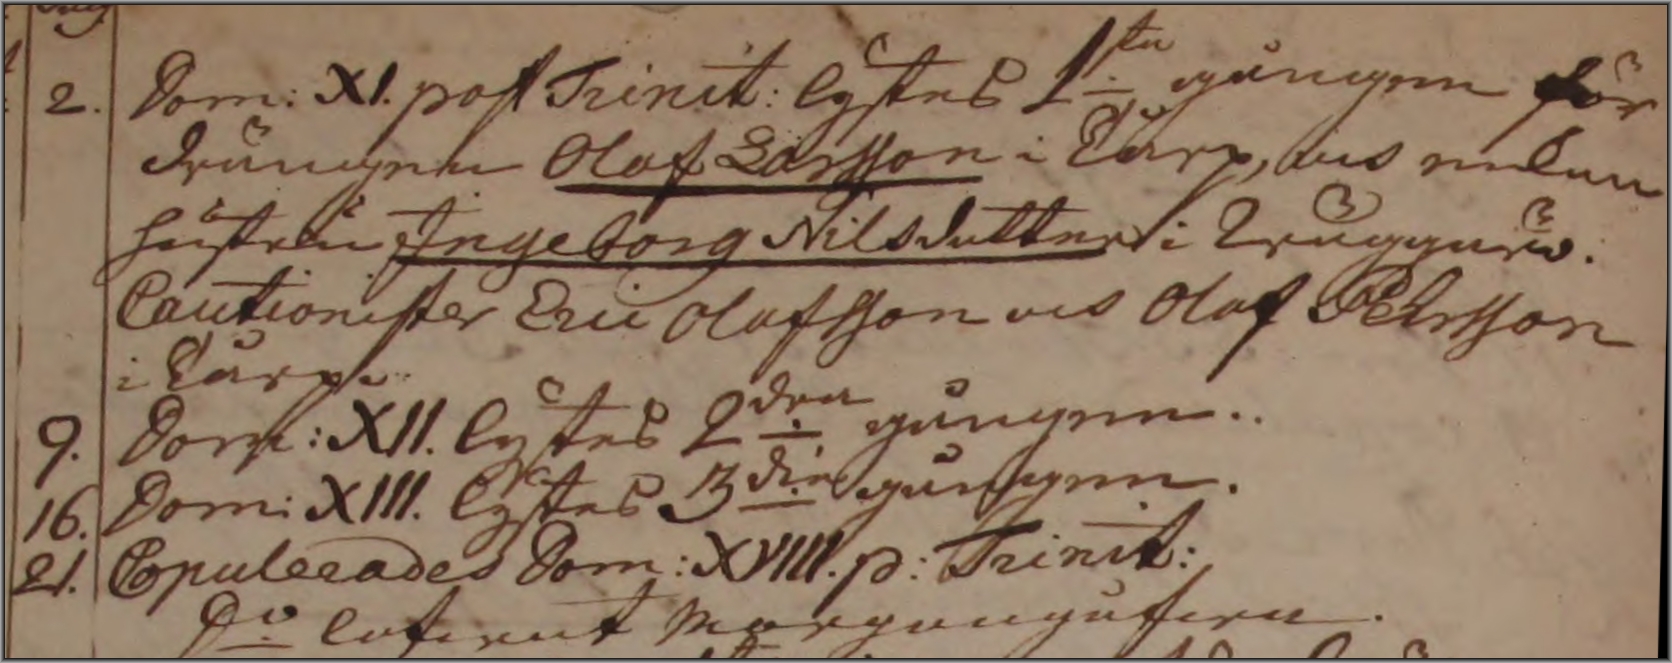 2. Dom: XI. post Trinit: lystes 1sta gången för
drängen Olof Larsson i Tårp, och
hustrun Ingeborg Nilsdotter i
Cautionister Eric Olofsson och Olof Pehrsson
i Tårp.
9. Dom: XII. lystes 2dra gången..
16. Dom: XIII. lystes 3die gången.
21. Copulerades Dom: XVIII. p: Trinit:
Do Morgongåfwa.